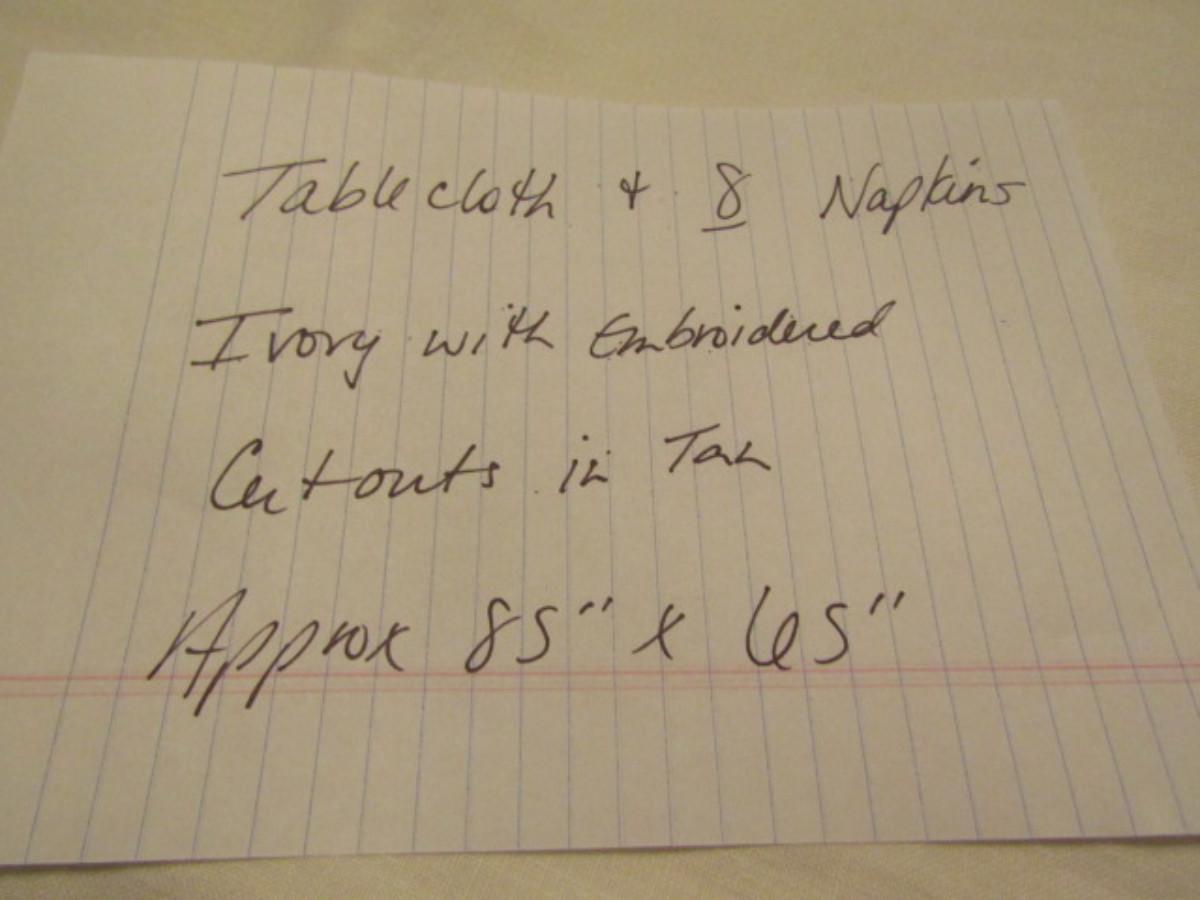 Tablecloth + 8 Napkins
Ivory with Embroidered
Cutouts in Tan
Approx 85" x 65"